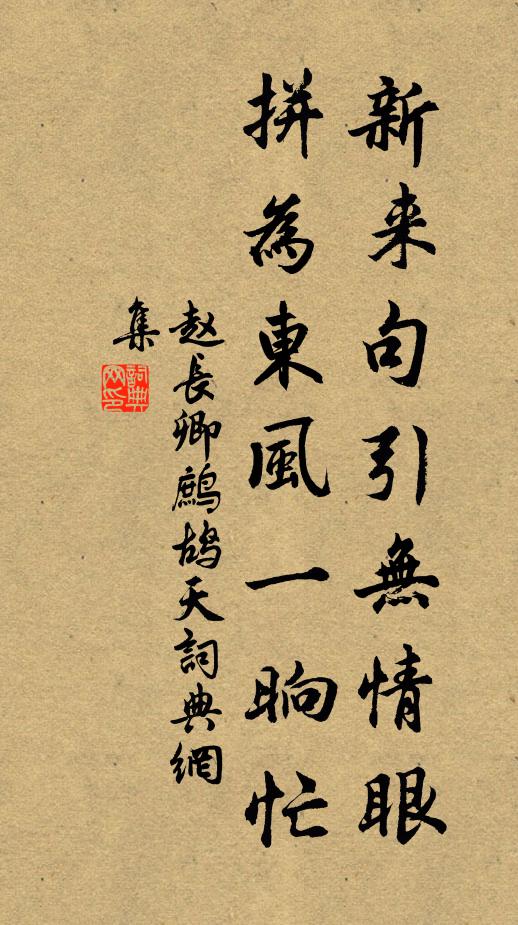 新来句引無情眼
拼為東風一晌忙
赵長卿鷓鴣天詞典網
集
詞典網印